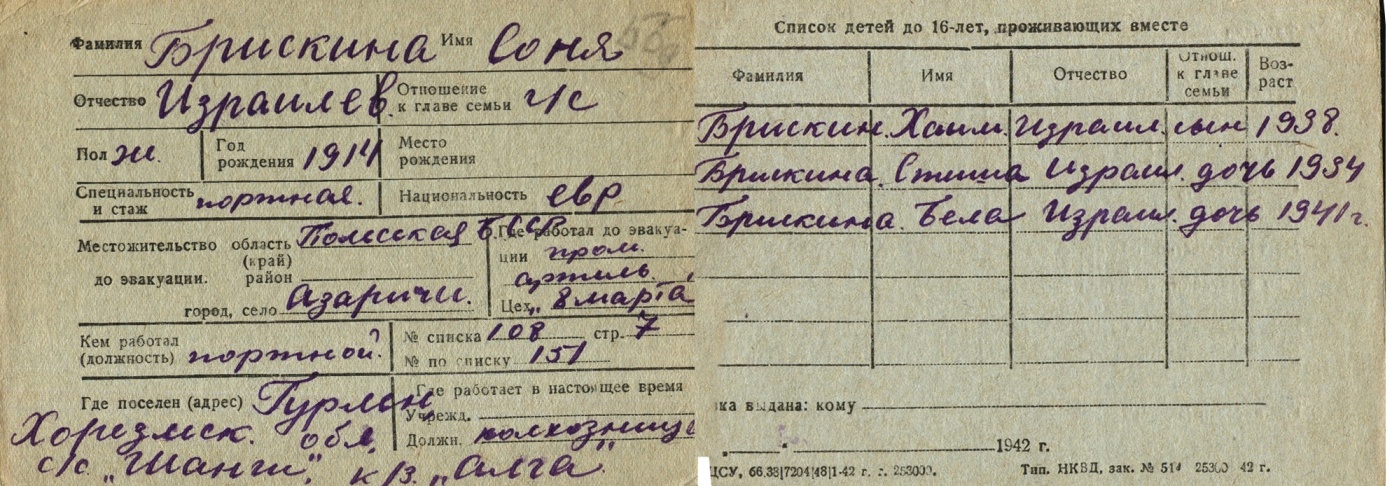 Фамилия Брискина Имя Соня
Отчество Израилев. Отношение к главе семьи ч/с
Пол ж. Год рождения 1914 Место рождения
Специальность и стаж портная. Национальность евр
Местожительство до эвакуации. область (край) Польсская БССР
район
город, село Азаричи.
Где работал до эвакуации пром. артиль.
Цех „8 марта
Кем работал (должность) портной.
№ списка 108 стр. 7
№ по списку 151
Где поселен (адрес) Гурлен
Хорезмск. обл,
с/с „Шанги", к/з. „Алга".
Где работает в настоящее время
Учрежд.
Должн. колхозница
Список детей до 16-лет, проживающих вместе
Фамилия Имя Отчество Отнош. к главе семьи Возраст
Брискин. Хаим. Израил. сын 1938.
Брискина. Израил. дочь 1934
Брискина. Бела Израил. дочь 1941 г.
ка выдана: кому
1942 г.
ЦСУ, 66.38|7204|48|1-42 г. г. 253000. Тип. НКВД, зак. № 514 25300 42 г.